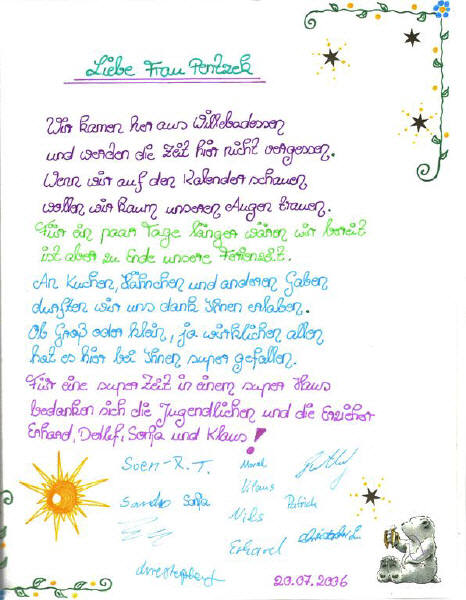 Liebe Frau Pentzek
Wir kamen her aus Willebadessen
und werden die Zeit hier nicht vergessen.
Wenn wir auf den Kalender schauen
wollen wir kaum unseren Augen trauen.
Für ein paar Tage länger wären wir bereit
ist aber zu Ende unsere Ferienzeit.
An Kuchen, Hähnchen und anderen Gaben
durften wir uns dank Ihnen erlaben.
Ob Groß oder klein, ja wirklichen allen
hat es hier bei Ihnen super gefallen.
Für eine super Zeit in einem super Haus
bedanken sich die Jugendlichen und die Erzieher
Erhard, Detlef, Sonja und Klaus!
Soen-R.T.
Sandro Sonja Patrick
Nils
Erhard
20.07.2006